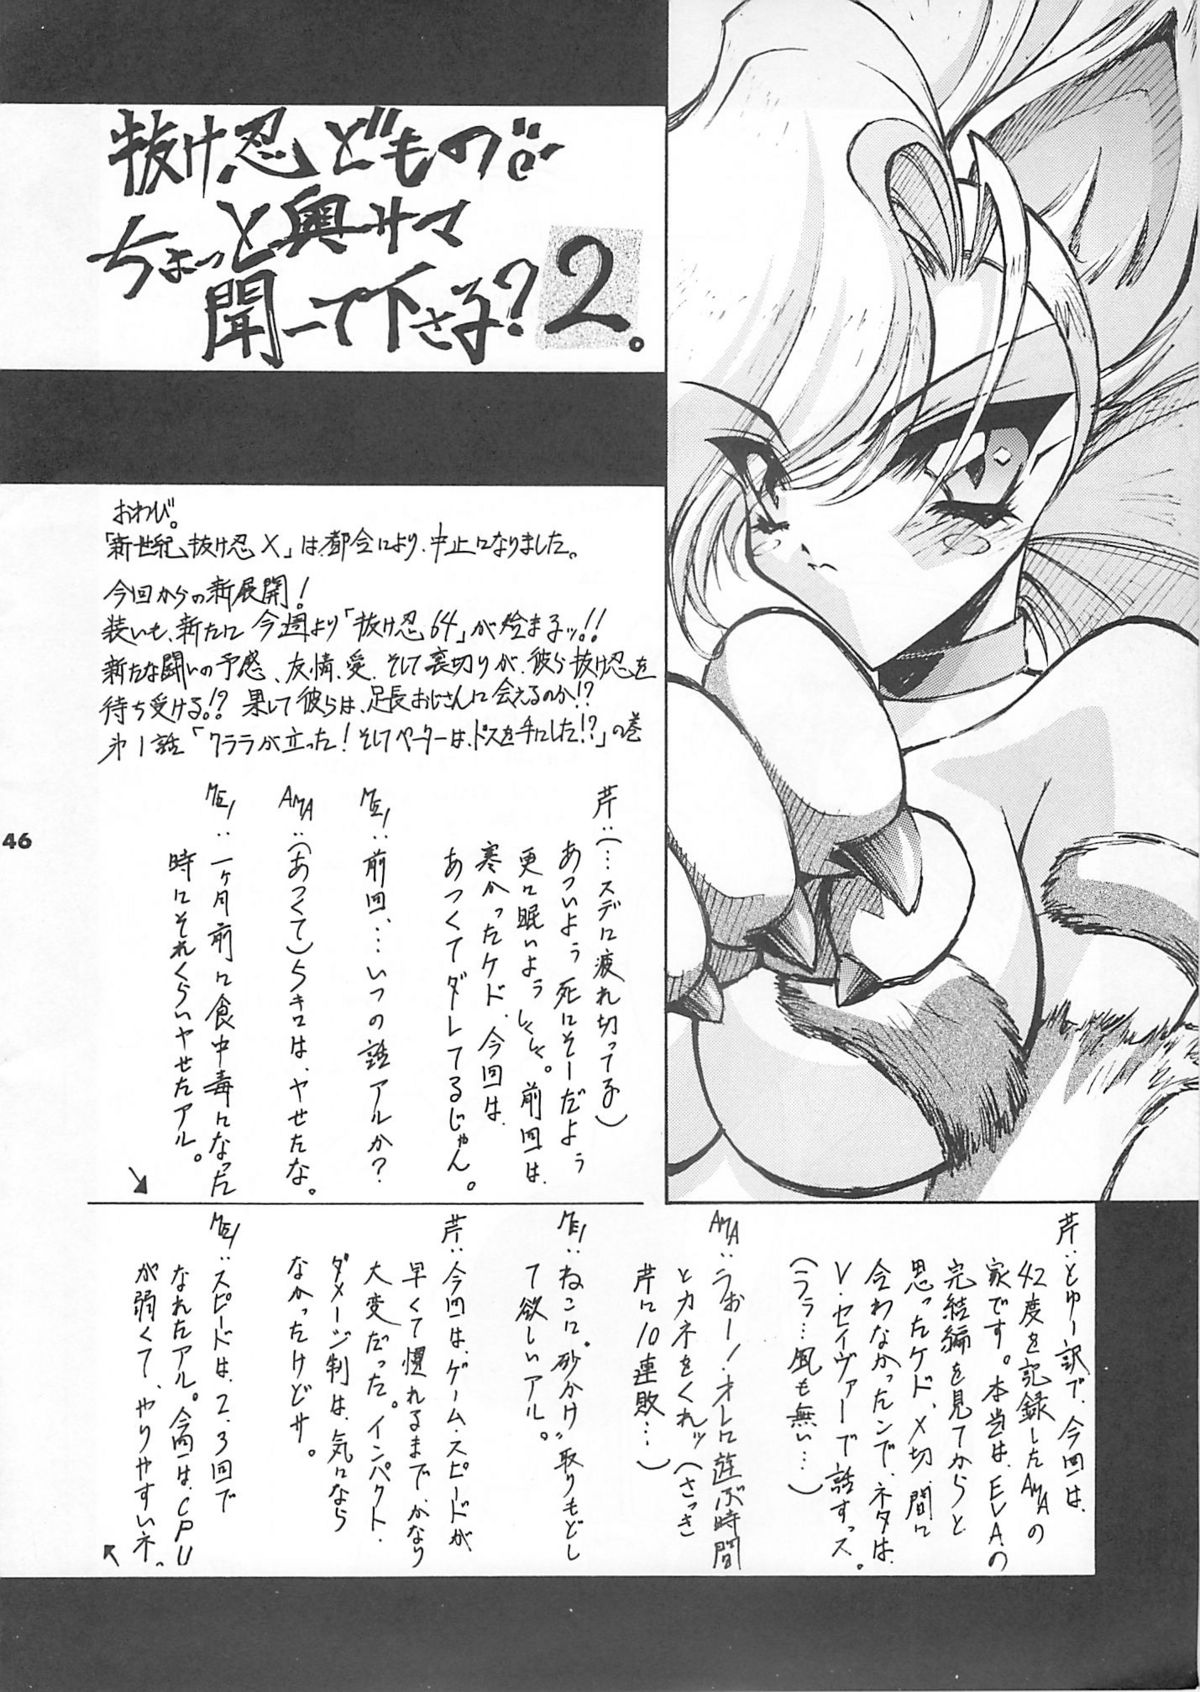 抜け忍どもの
ちょっと奥サマ
聞いて下さる？2。
おわび。
「新世紀抜け忍X」は、都合により、中止になりました。
今回からの新展開！
装いも、新たに今週より「抜け忍64」が始まるッ!!
新たな闘いの予感、友情、愛、そして裏切りが、彼ら抜け忍を
待ち受ける!? 果して彼らは、足長おじさんに会えるのか!?
第1話「クララが立った！そしてペーターは、ドスを手にした!?」の巻
芹：（…スデに疲れ切ってる）
あついよう 死にそーだよう
更に眠いよう しくしく。前回は、
寒かったケド、今回は、
あつくてダレてるじゃん。
MEI：前回、…いつの話アルか？
AMA：（あつくて）5キロは、ヤせたな。
MEI：一ヶ月前に食中毒になった
時にそれくらいヤせたアル。
芹：とゆー訳で、今回は、
42度を記録したAMAの
家です。本当は、EVAの
完結編を見てからと
思ったケド、〆切、間に
合わなかったンで、ネタは、
V・セイヴァーで話すっス。
（ララ…風も無い…）
AMA：うおー！オレに遊ぶ時間
とカネをくれッ（さっき
芹に10連敗…）
MEI：ねこに"砂かけ"取りもどし
て欲しいアル。
芹：今回は、ゲーム・スピードが、
早くて慣れるまでかなり
大変だった。インパクト・
ダメージ制は、気になら
なかったけどサ。
MEI：スピードは、2,3回で
なれたアル。今回は、CPU
が弱くて、やりやすいネ。
46